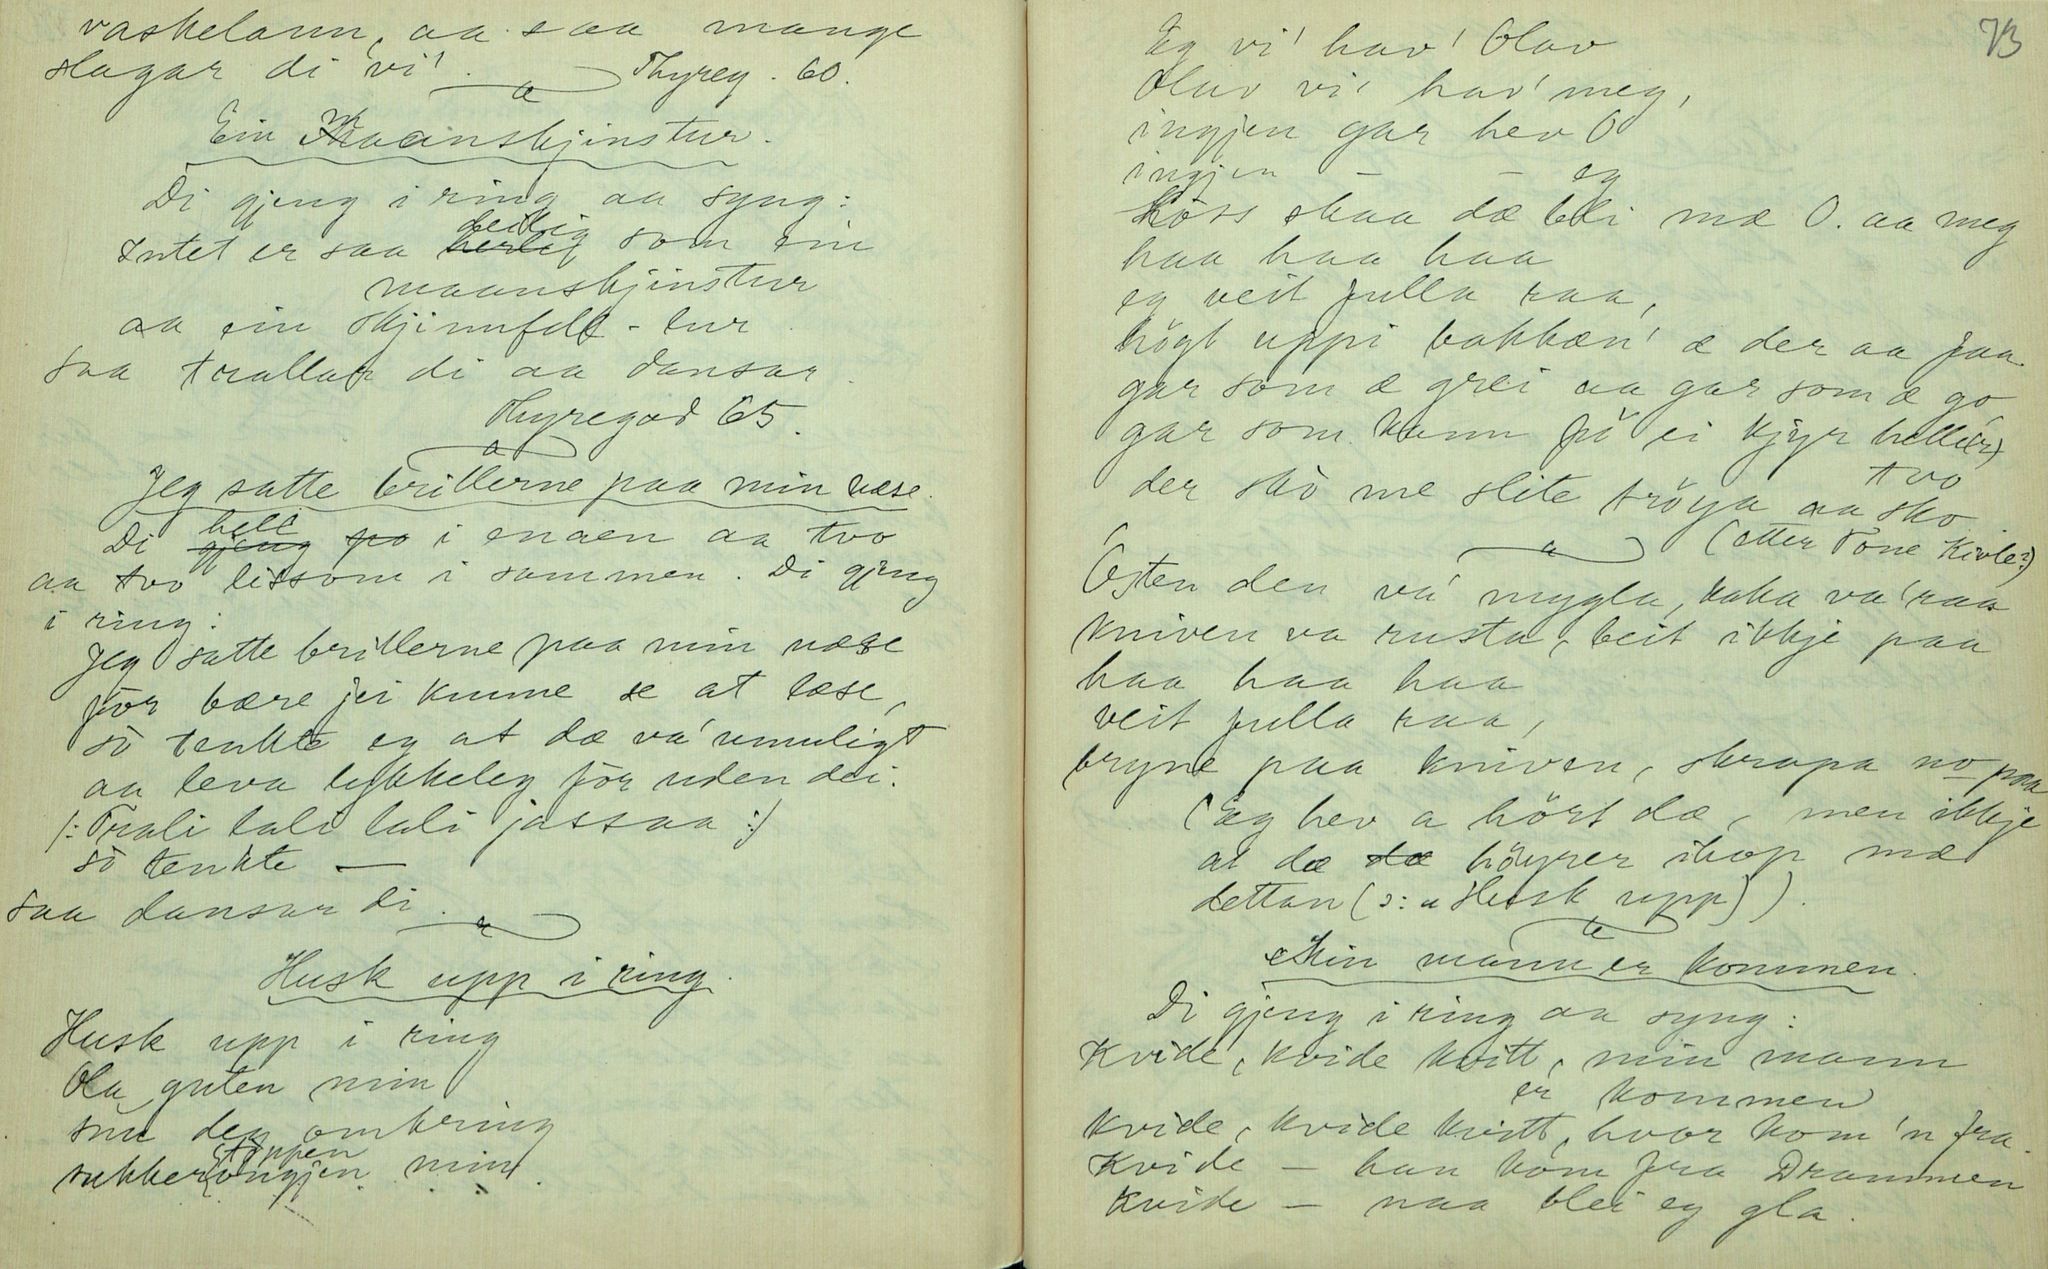 vaskelann, aa saa mange
slagar di vi'. Thyreg. 60.
Ein Maanskjinstur.
Di gjeng i ring aa syng:
deilig
Intet er saa herlig som ein
maanskjinstur
aa ein skjinnfell-tur.
saa trallar di aa dansar.
Thyregod 65.
Jeg satte brillerne paa min næse.
hell
Di gjeng po i enden aa tvo
aa tvo lissom i sammen. Di gjeng
i ring:
Jeg satte brillerne paa min næse
for bære jei kunne se at læse,
så tenkte eg at dæ va' umuligt
aa leva lykkeleg for uden dei.
/: Trali lali lali jassaa :/
så tenkte —
saa dansar di.
Husk upp i ring.
Husk upp i ring
Ola guten min
snu deg omkring
toppen
sukkerongjen min.
73
Eg vi' hav' Olav
Olav vi' hav' meg,
ingjen gar hev O
ingjen — — eg
Håss skaa dæ bli mæ O. aa meg
haa haa haa
eg veit fulla raa,
högt uppi bakkæn' æ der aa faa
gar som æ grei aa gar som æ go
gar som kann fö ei kjyr heller)
tvo
der skò me slite tröya aa sko
(etter Tone Kivle?)
Osten den va' mygla, kaka va' raa
kniven va rusta, beit ikkje paa
haa haa haa
veit fulla raa,
bryne paa kniven, skrapa no paa
(Eg hev a hört dæ, men ikkje
at dæ dæ höyrer ihop mæ
dettan (ɔ: "Husk upp)).
Min mann er kommen.
Di gjeng i ring aa syng:
Kvide, kvide kvitt, min mann
er kommen
Kvide, kvide kvitt, hvor kom'n fra.
Kvide — han kom fra Drammen
Kvide — naa blei eg gla.